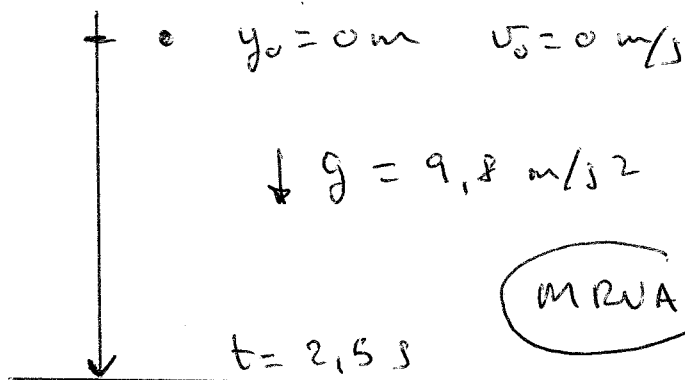 y₀ = 0 m   v₀ = 0 m/s
↓ g = 9,8 m/s2
MRUA
t = 2,5 s